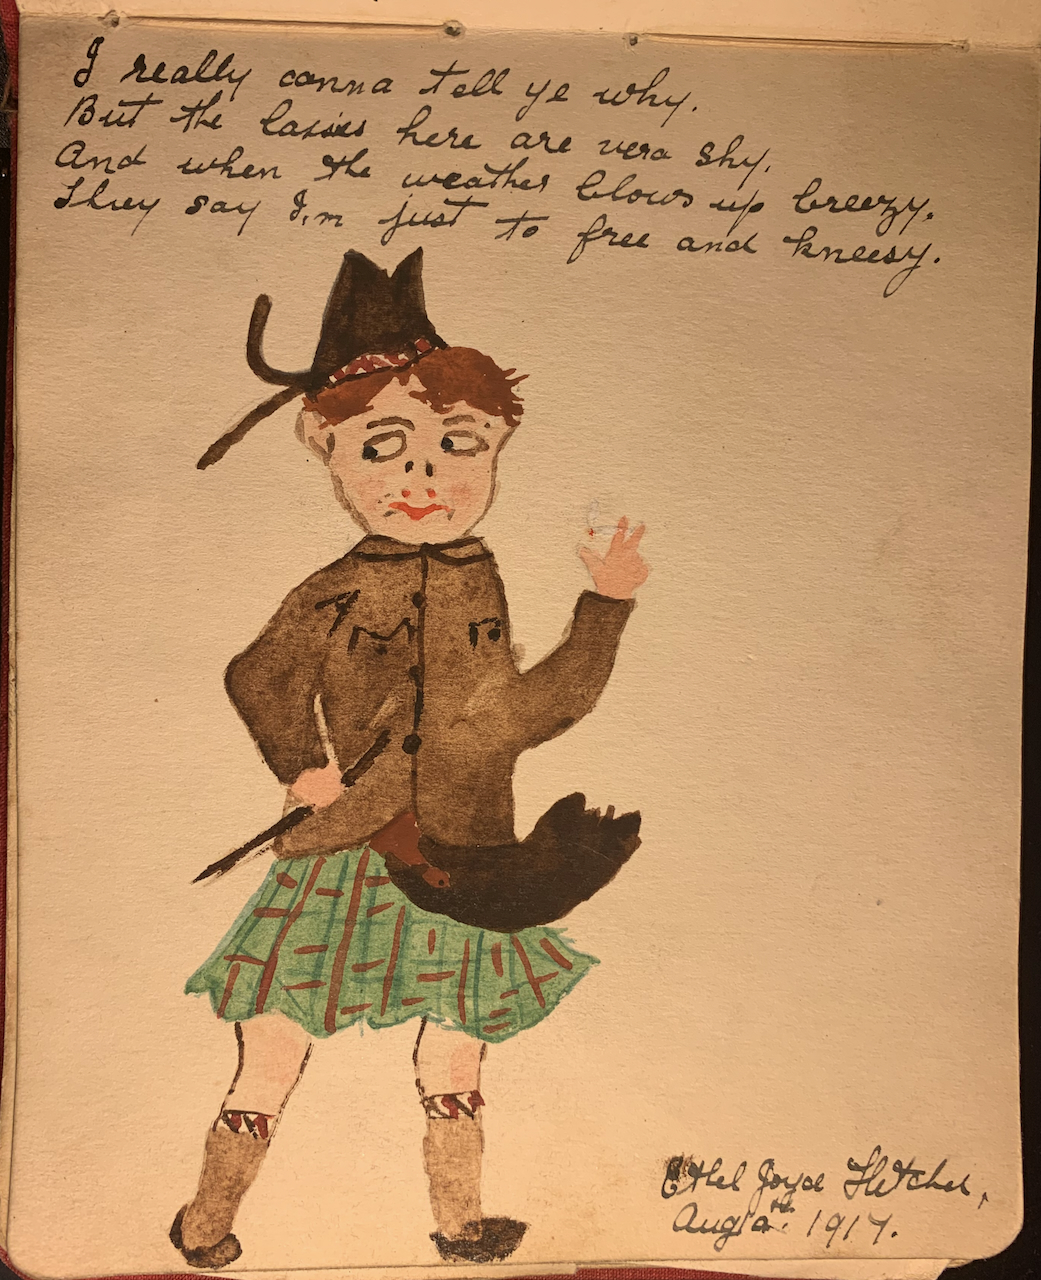 I really canna tell ye why.
But the lassies here are vera shy,
And when the weather blows up breezy,
They say I,m just to free and kneesy.
Ethel Joyce Fletcher,
Aug 1917.